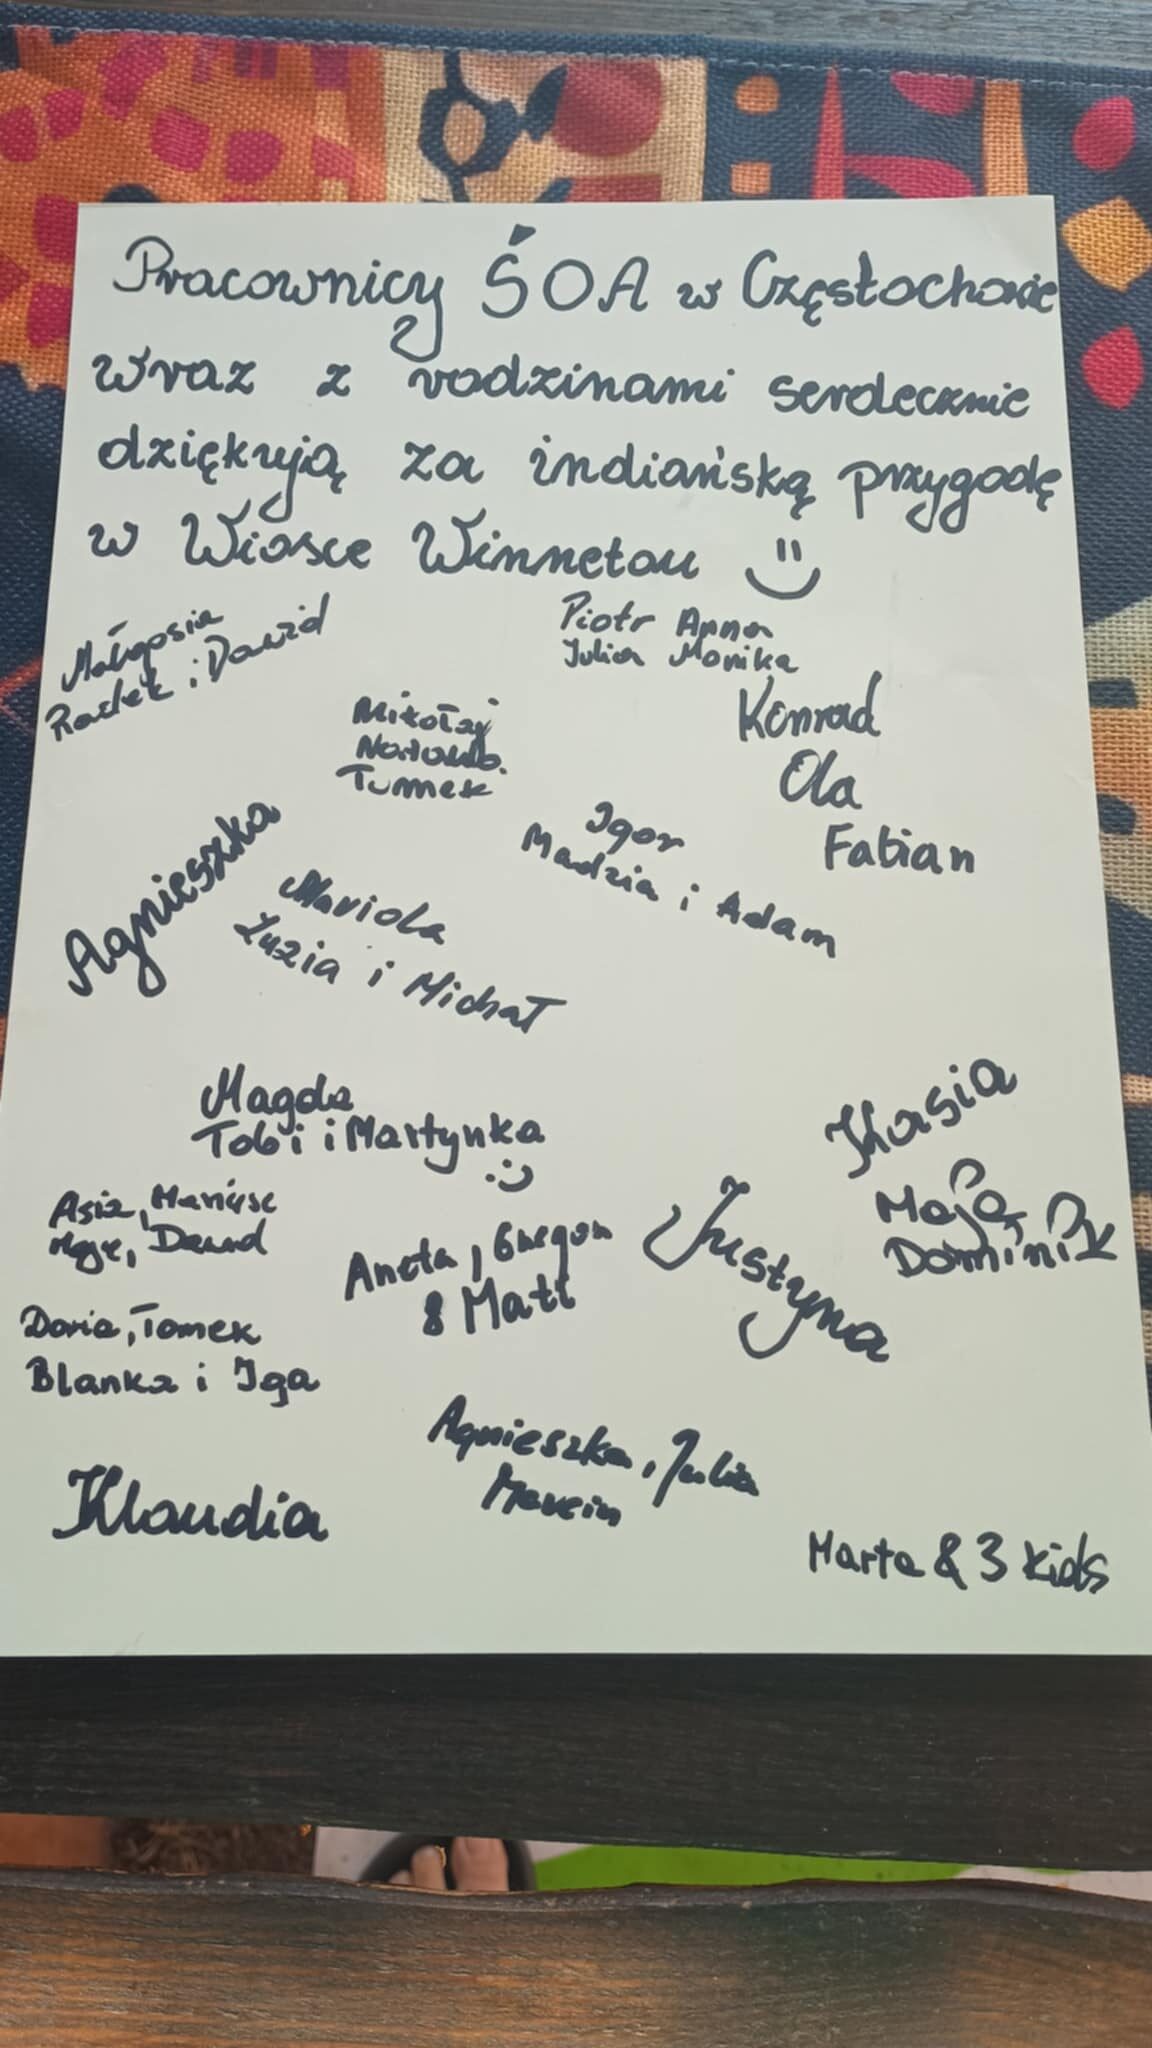 Pracownicy ŚOA w Częstochowie
wraz z rodzinami serdecznie
dziękują za indiańską przygodę
w Wiosce Winnetou
Małgosia
Radek i Dawid
Piotr Anna
Julia Monika
Mikołaj
Tymek
Konrad
Ola
Fabian
Igor
Madzia i Adam
Agnieszka
Mariola
Zuzia i Michał
Magda
Tobi i Martynka
:)
Kasia
Maja
Dominik
Asia, Mariusz
Maja, Dawid
Aneta, Grzegorz
& Mati
Justyna
Daria, Tomek
Blanka i Iga
Agnieszka, Julia
Marcin
Klaudia
Marta & 3 kids